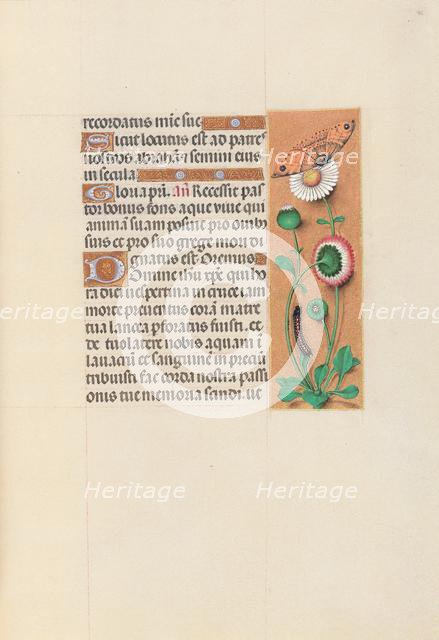 recordatus mie sue
Sicut locutus est ad patres
nostros abraham ⁊ semini eius
in secula
Gloria pri. añ Recessit pas
tor bonus fons aque vive qui
animam suam posuit pro ovi
bus suis et pro suo grege mori di
gnatus est Oremus
Domine ihu xpe qui ho
ra diei vespertina in cruce iam
mortuus coram matre
tua lancea perforatus fuisti. et
de tuo latere nobis aquam in
lavacrum et sanguinem in precium
tribuisti fac corda nostra passi
onis tue memoria sandi. uc
Heritage Heritage Heritage
Heritage Heritage Heritage
Heritage Heritage